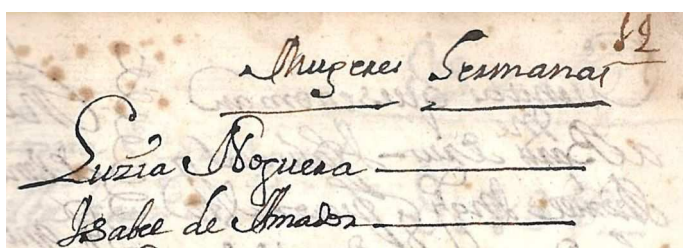 12
Mugeres Hermanas
Luzia Noguera
Isabel de Amador